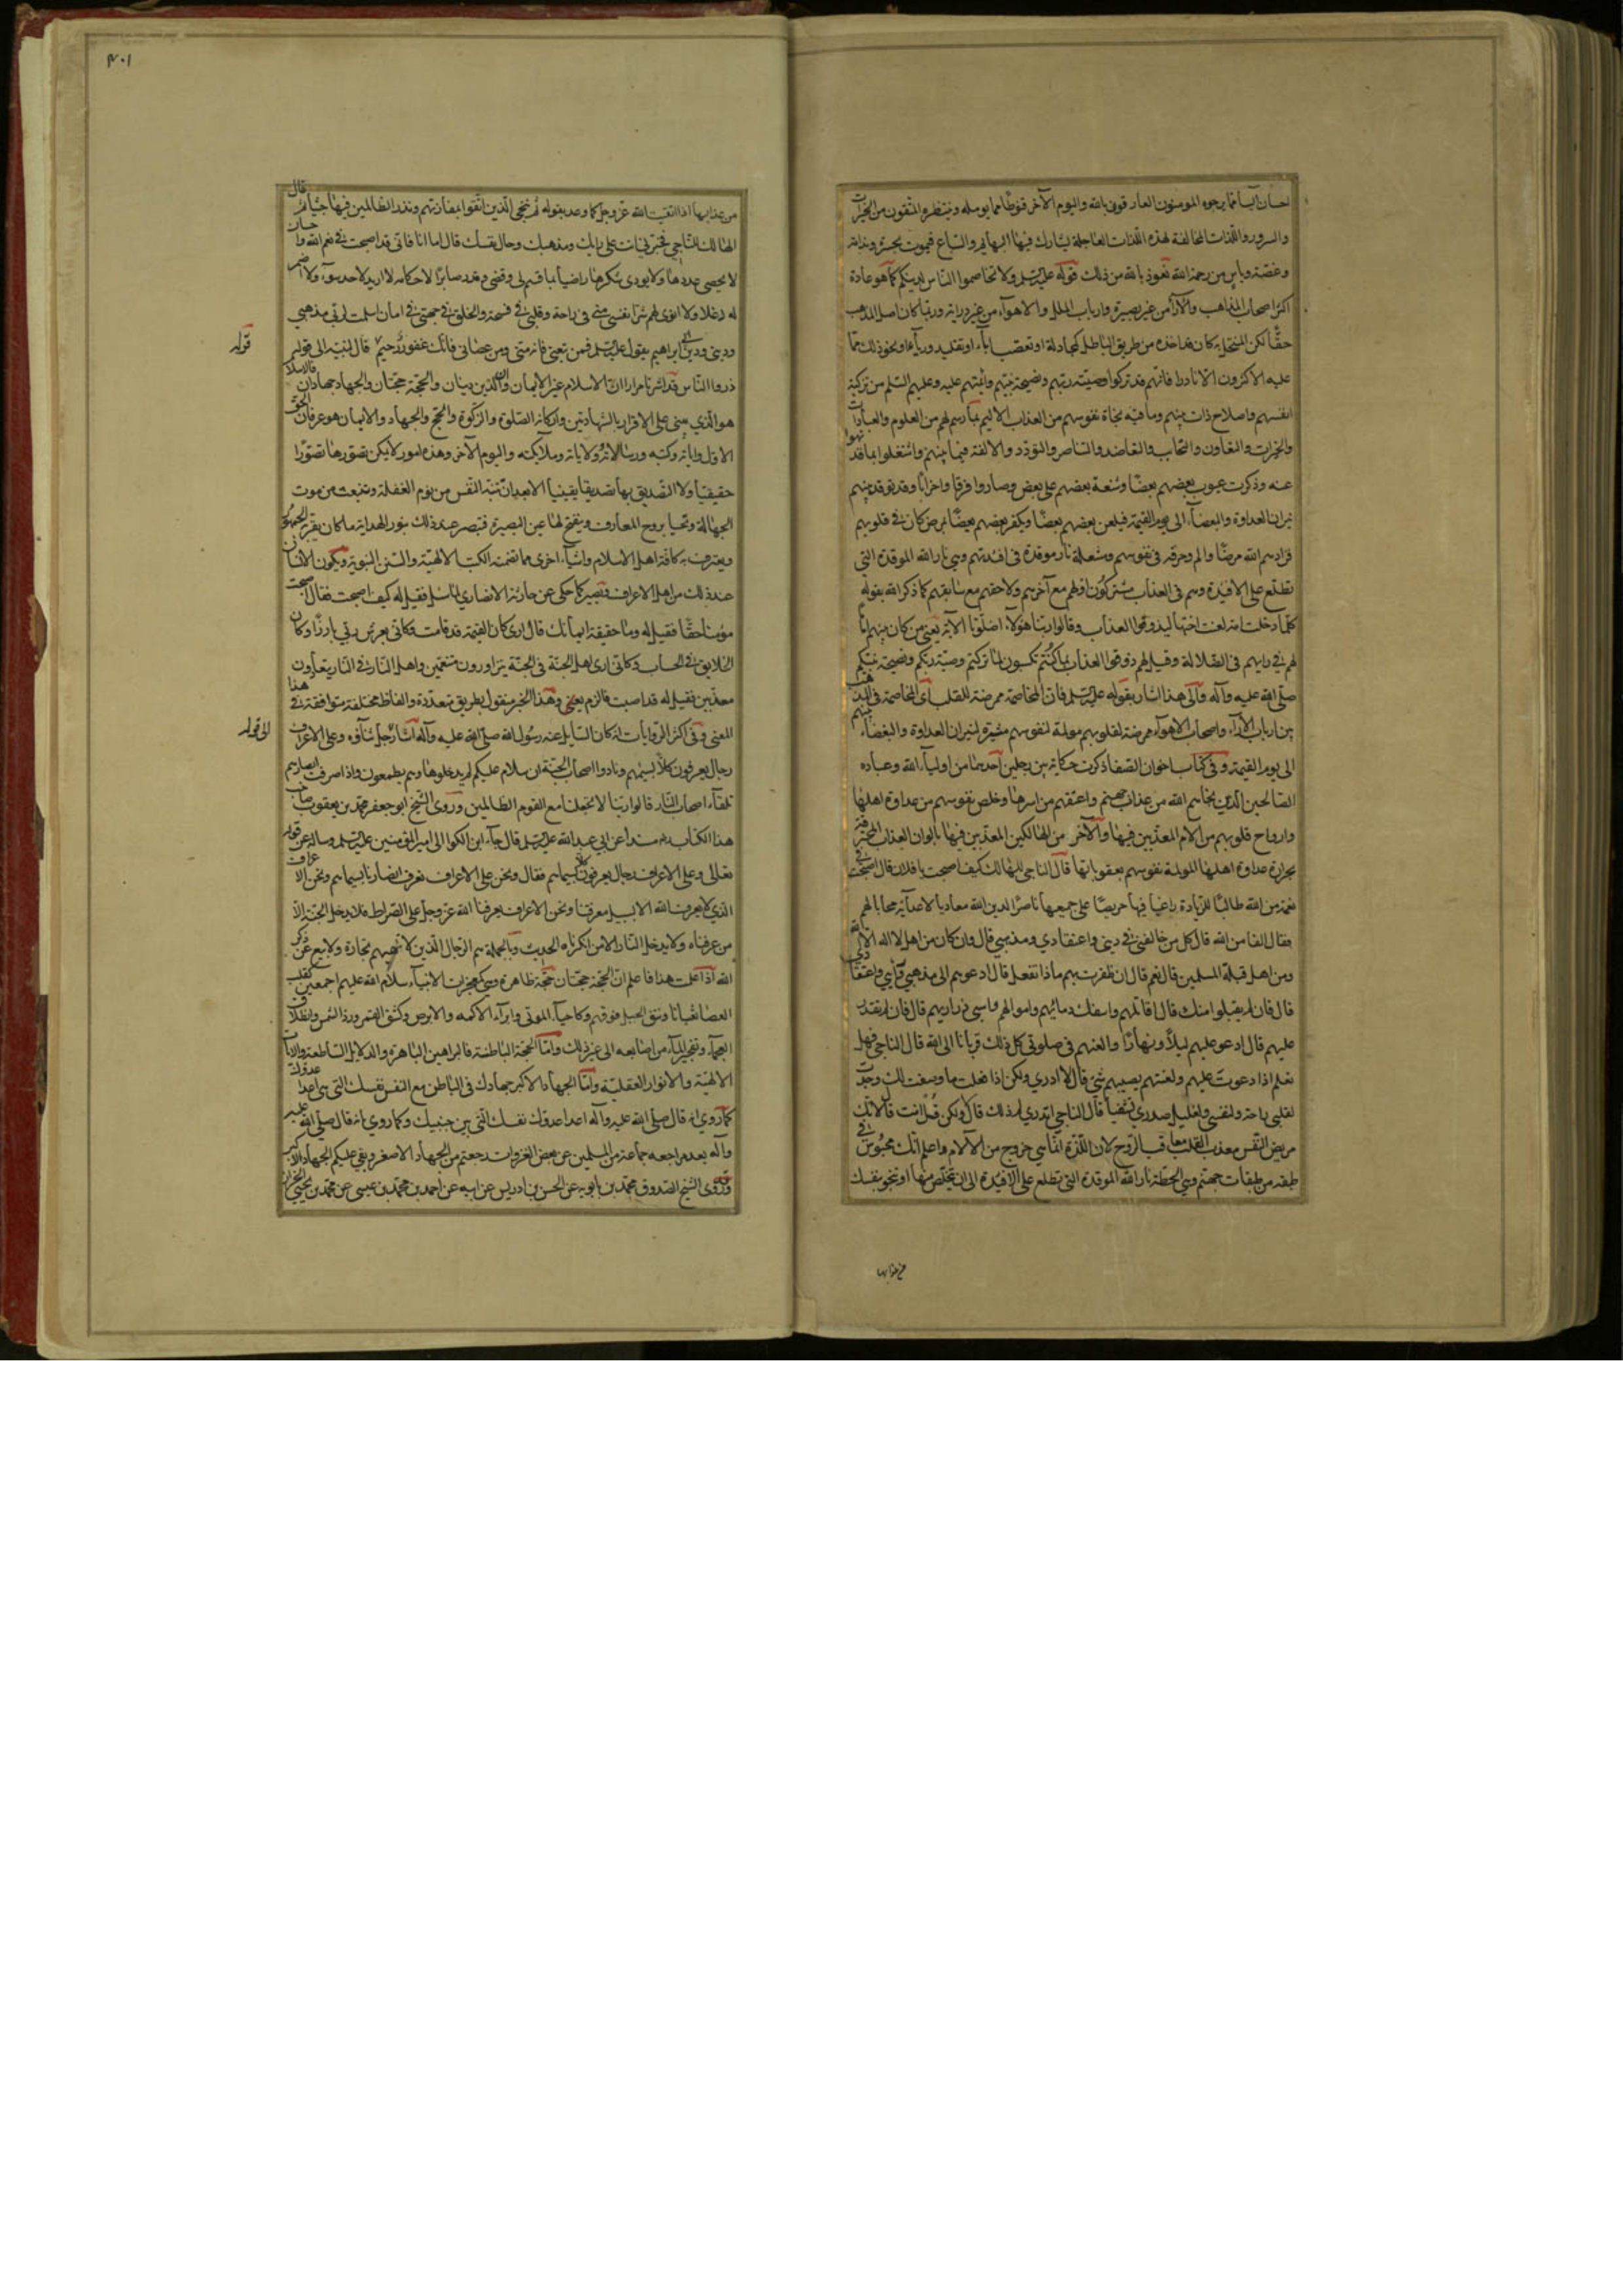 والسرور واللذات المخالفة لهذه اللذات العاجلة يشارك فيها البهائم والسباع فيموت بحسرة وندامة
وغصة ويأس من رحمة الله نعوذ بالله من ذلك قوله عليه السلم ولا تخاصموا الناس لدينكم كما هو عادة
اكثر اصحاب المذاهب والآراء من غير بصيرة وارباب الملل والاهوآء من غير دراية وربما كان اصل المذهب
حقا لكن المنتحل به كان مأخذه من طريق الباطل كمجادلة او تعصب لآباء او تقليد ورياء او نحو ذلك مما
عليه الاكثرون الا نادرا فانهم قد تركوا وصية ربهم ونصيحة نبيهم وائمتهم عليه وعليهم السلم من تزكية
انفسهم واصلاح ذات بينهم وما فيه نجاة نفوسهم من العذاب الاليم بما رسم لهم من العلوم والعبادات
والخيرات والتعاون والتحاب والتعاضد والتناصر والتودد والالفة فيما بينهم واشتغلوا بما قد نهوا
عنه وذكرت عيوب بعضهم بعضا وشنعة بعضهم على بعض وصاروا فرقا واحزابا وقد توقد بينهم
نيران العداوة والبغضاء الى يوم القيمة فيلعن بعضهم بعضا ويكفر بعضهم بعضا لمرض كان في قلوبهم
فزادهم الله مرضا والم وحرقة في نفوسهم وشعلة نار موقدة في افئدتهم وهي نار الله الموقدة التي
تطلع على الافئدة وهم في العذاب مشتركون اولهم مع آخرهم ولاحقهم مع سابقهم كما ذكر الله بقوله
كلما دخلت امة لعنت اختها ليذوقوا العذاب وقالوا ربنا هؤلاء اضلونا الآية يعني من كان بينهم
لهم في رأيهم في الضلالة وقيل لهم ذوقوا العذاب بما كنتم تكسبون لما تركتم وصية ربكم ونصيحة نبيكم
صلى الله عليه وآله والى هذا اشار بقوله عليه السلم فان المخاصمة ممرضة للقلب اى المخاصمة في الدين
بين ارباب الآراء واصحاب الاهوآء ممرضة لقلوبهم مولمة لنفوسهم مثيرة لنيران العداوة والبغضاء بينهم
الى يوم القيمة وفي كتاب اخوان الصفا ذكرت حكاية بين رجلين احدهما من اوليآء الله وعباده
الصالحين الذين نجاهم الله من عذاب جهنم واعتقهم من اسرها وخلص نفوسهم من عداوة اهلها
وارواح قلوبهم من آلام المعذبين فيها والآخر من الهالكين المعذبين فيها بالوان العذاب المحرقة
بحرارة عداوة اهلها المولمة نفوسهم بعقوباتها قال الناجي للهالك كيف اصبحت يا فلان قال اصبحت في
نعمة من الله طالبا للزيادة راغبا فيها حريصا على جمعها ناصرا لدين الله معاديا لاعدآئه محاربا لهم
فقال الناجي ومن اعداء الله قال كل من خالفني في ديني واعتقادي ومذهبي قال وان كان من اهل لا اله الا الله
ومن اهل قبلة المسلمين قال نعم قال ان ظفرت بهم ماذا تفعل قال ادعوهم الى مذهبي ورأيي واعتقادي
قال فان لم يقبلوا منك قال اقاتلهم واسفك دمائهم واموالهم واسبي ذراريهم قال فان لم تقدر
عليهم قال ادعو عليهم ليلا ونهارا والعنهم في صلوتي كل ذلك قربانا الى الله قال الناجي فهل
تعلم اذا دعوت عليهم ولعنتهم يصيبهم شئ قال لا ادري ولكن اذا فعلت ما وصفت لك وجدت
لقلبي راحة ولنفسي لذة ولغليل صدري تشفيا قال الناجي اتدري لم ذلك قال لا ولكن قل انت قال لانك
مريض النفس معذب القلب معاقب الروح لان اللذة انما هي خروج من الآلام واعلم انك محبوس في
طبقة من طبقات جهنم وهي الحطمة نار الله الموقدة التي تطلع على الافئدة الى ان تخلص منها او تنجو نفسك
من عذابها
٤٠١
من عذابها اذا اتقيت الله عز وجل كما وعد بقوله ثم ننجى الذين اتقوا بمفازتهم ونذر الظالمين فيها جثيا ثم قال
الهالك للناجي خبرني انت على رأيك ومذهبك وحال نفسك قال اما انا فاني قد اصبحت في نعم الله واحسان
لا يحصى عددها ولا يودى شكرها راضيا بما قسم لي وقضى وقدر صابرا لاحكامه لا اريد لاحد سوء ولا اضمر
له دغلا ولا انوي لهم شرا نفسي مني في راحة وقلبي في فسحة والخلق في جهتي في امان اسلمت لربي مذهبي
وديني ودين ابي ابراهيم يقول عليه السلم فمن تبعني فانه مني ومن عصاني فانك غفور رحيم قال لنبيه الى قوله
قوله
ذروا الناس قد اشرنا مرارا ان الاسلام غير الايمان وان الدين دينان والحجة حجتان والجهاد جهادان فالاسلام
هو الذي مبنى على الاقرار بالشهادتين واركانه الصلوة والزكوة والحج والجهاد والايمان هو عرفان الحق
الاول وآياته وكتبه ورسالاته وولاياته وملآئكته واليوم الآخر وهذه امور لا يمكن تصورها تصورا
حقيقيا ولا التصديق بها تصديقا يقينيا الا بعد ان تنبه النفس من نوم الغفلة وتنبعث من موت
الجهالة وتحيا بروح المعارف وينفتح لها عين البصيرة فتبصر عند ذلك بنور الهداية ما كان يقر به الجمهور
ويعترف به كافة اهل الاسلام واشياء اخرى مما تضمنه الكتب الالهية والسنن النبوية ويكون الانسان
عند ذلك من اهل الاعراف فيصير كما حكى عن حارثة الانصاري لما سئل فقيل له كيف اصبحت فقال اصبحت
مؤمنا حقا فقيل له وما حقيقة ايمانك قال ارى كان القيمة قد قامت وكاني بعرش ربي بارزا وكان
الخلايق في الحساب وكاني ارى اهل الجنة في الجنة يتزاورون متنعمين واهل النار في النار يتعاوون
معذبين فقيل له قد اصبت فالزم يعني هذا وهذا الخبر منقول بطريق متعددة والفاظ مختلفة متوافقة في
المعنى وفي اكثر الروايات انه كان السايل عنه رسول الله صلى الله عليه وآله اشار جل ثناؤه وعلى الاعراف
الى قوله
رجال يعرفون كلا بسيمهم ونادوا اصحاب الجنة ان سلام عليكم لم يدخلوها وهم يطمعون واذا صرفت ابصارهم
تلقآء اصحاب النار قالوا ربنا لا تجعلنا مع القوم الظالمين وروى الشيخ ابو جعفر محمد بن يعقوب صاحب
هذا الكتاب مسندا عن ابي عبد الله عليه السلم قال جآء ابن الكوا الى امير المؤمنين عليه السلم وساله عن قوله
تعالى وعلى الاعراف رجال يعرفون كلا بسيماهم فقال ونحن على الاعراف نعرف انصارنا بسيماهم ونحن الاعراف
الذي لا يعرف الله الا بسبيل معرفتنا ونحن الاعراف يعرفنا الله عز وجل على الصراط فلا يدخل الجنة الا
من عرفناه ولا يدخل النار الا من انكرناه الحديث وبالجملة هم الرجال الذين لا تلهيهم تجارة ولا بيع عن ذكر
الله اذا علمت هذا فاعلم ان الحجة حجتان حجة ظاهرة وهي كمعجزات الانبيآء سلام الله عليهم اجمعين كقلب
العصا ثعبانا ونتق الجبل فوقهم وكاحيآء الموتى وابرآء الاكمه والابرص وكشق القمر ورد الشمس وانطلاق
العجماء وتفجير المآء من اصابعه الى غير ذلك واما الحجة الباطنة فالبراهين الباهرة والدلايل الساطعة والآيات
الالهية والانوار العقلية واما الجهاد الاكبر جهادك في الباطن مع النفس نفسك التي هي اعدا عدوك
كما روي انه قال صلى الله عليه وآله اعدا عدوك نفسك التي بين جنبيك وكما روي انه قال صلى الله عليه
وآله بعد مراجعه جماعة من المسلمين عن بعض الغزوات رجعتم من الجهاد الاصغر وبقي عليكم الجهاد الاكبر
وروى الشيخ الصدوق محمد بن بابويه عن الحسن بن ادريس عن ابيه عن احمد بن محمد بن عيسى عن محمد بن يحيى الخزاز